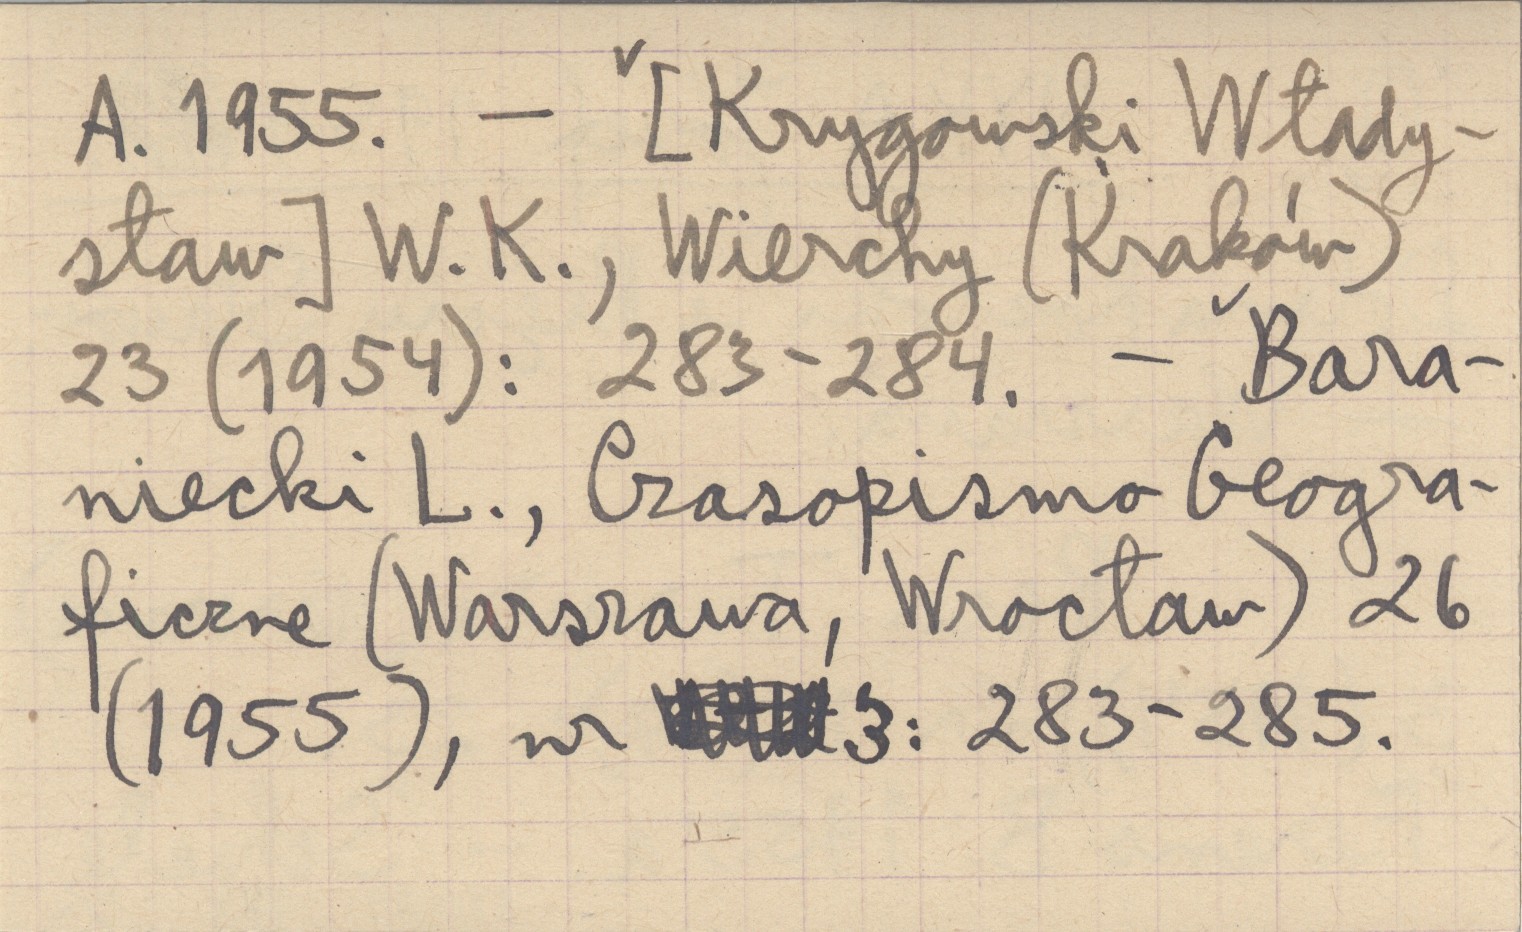 A. 1955. — [Krygowski Włady-
sław] W.K., Wierchy (Kraków)
23 (1954): 283-284. — Bara-
niecki L., Czasopismo Geogra-
ficzne (Warszawa, Wrocław) 26
(1955), nr 3: 283-285.